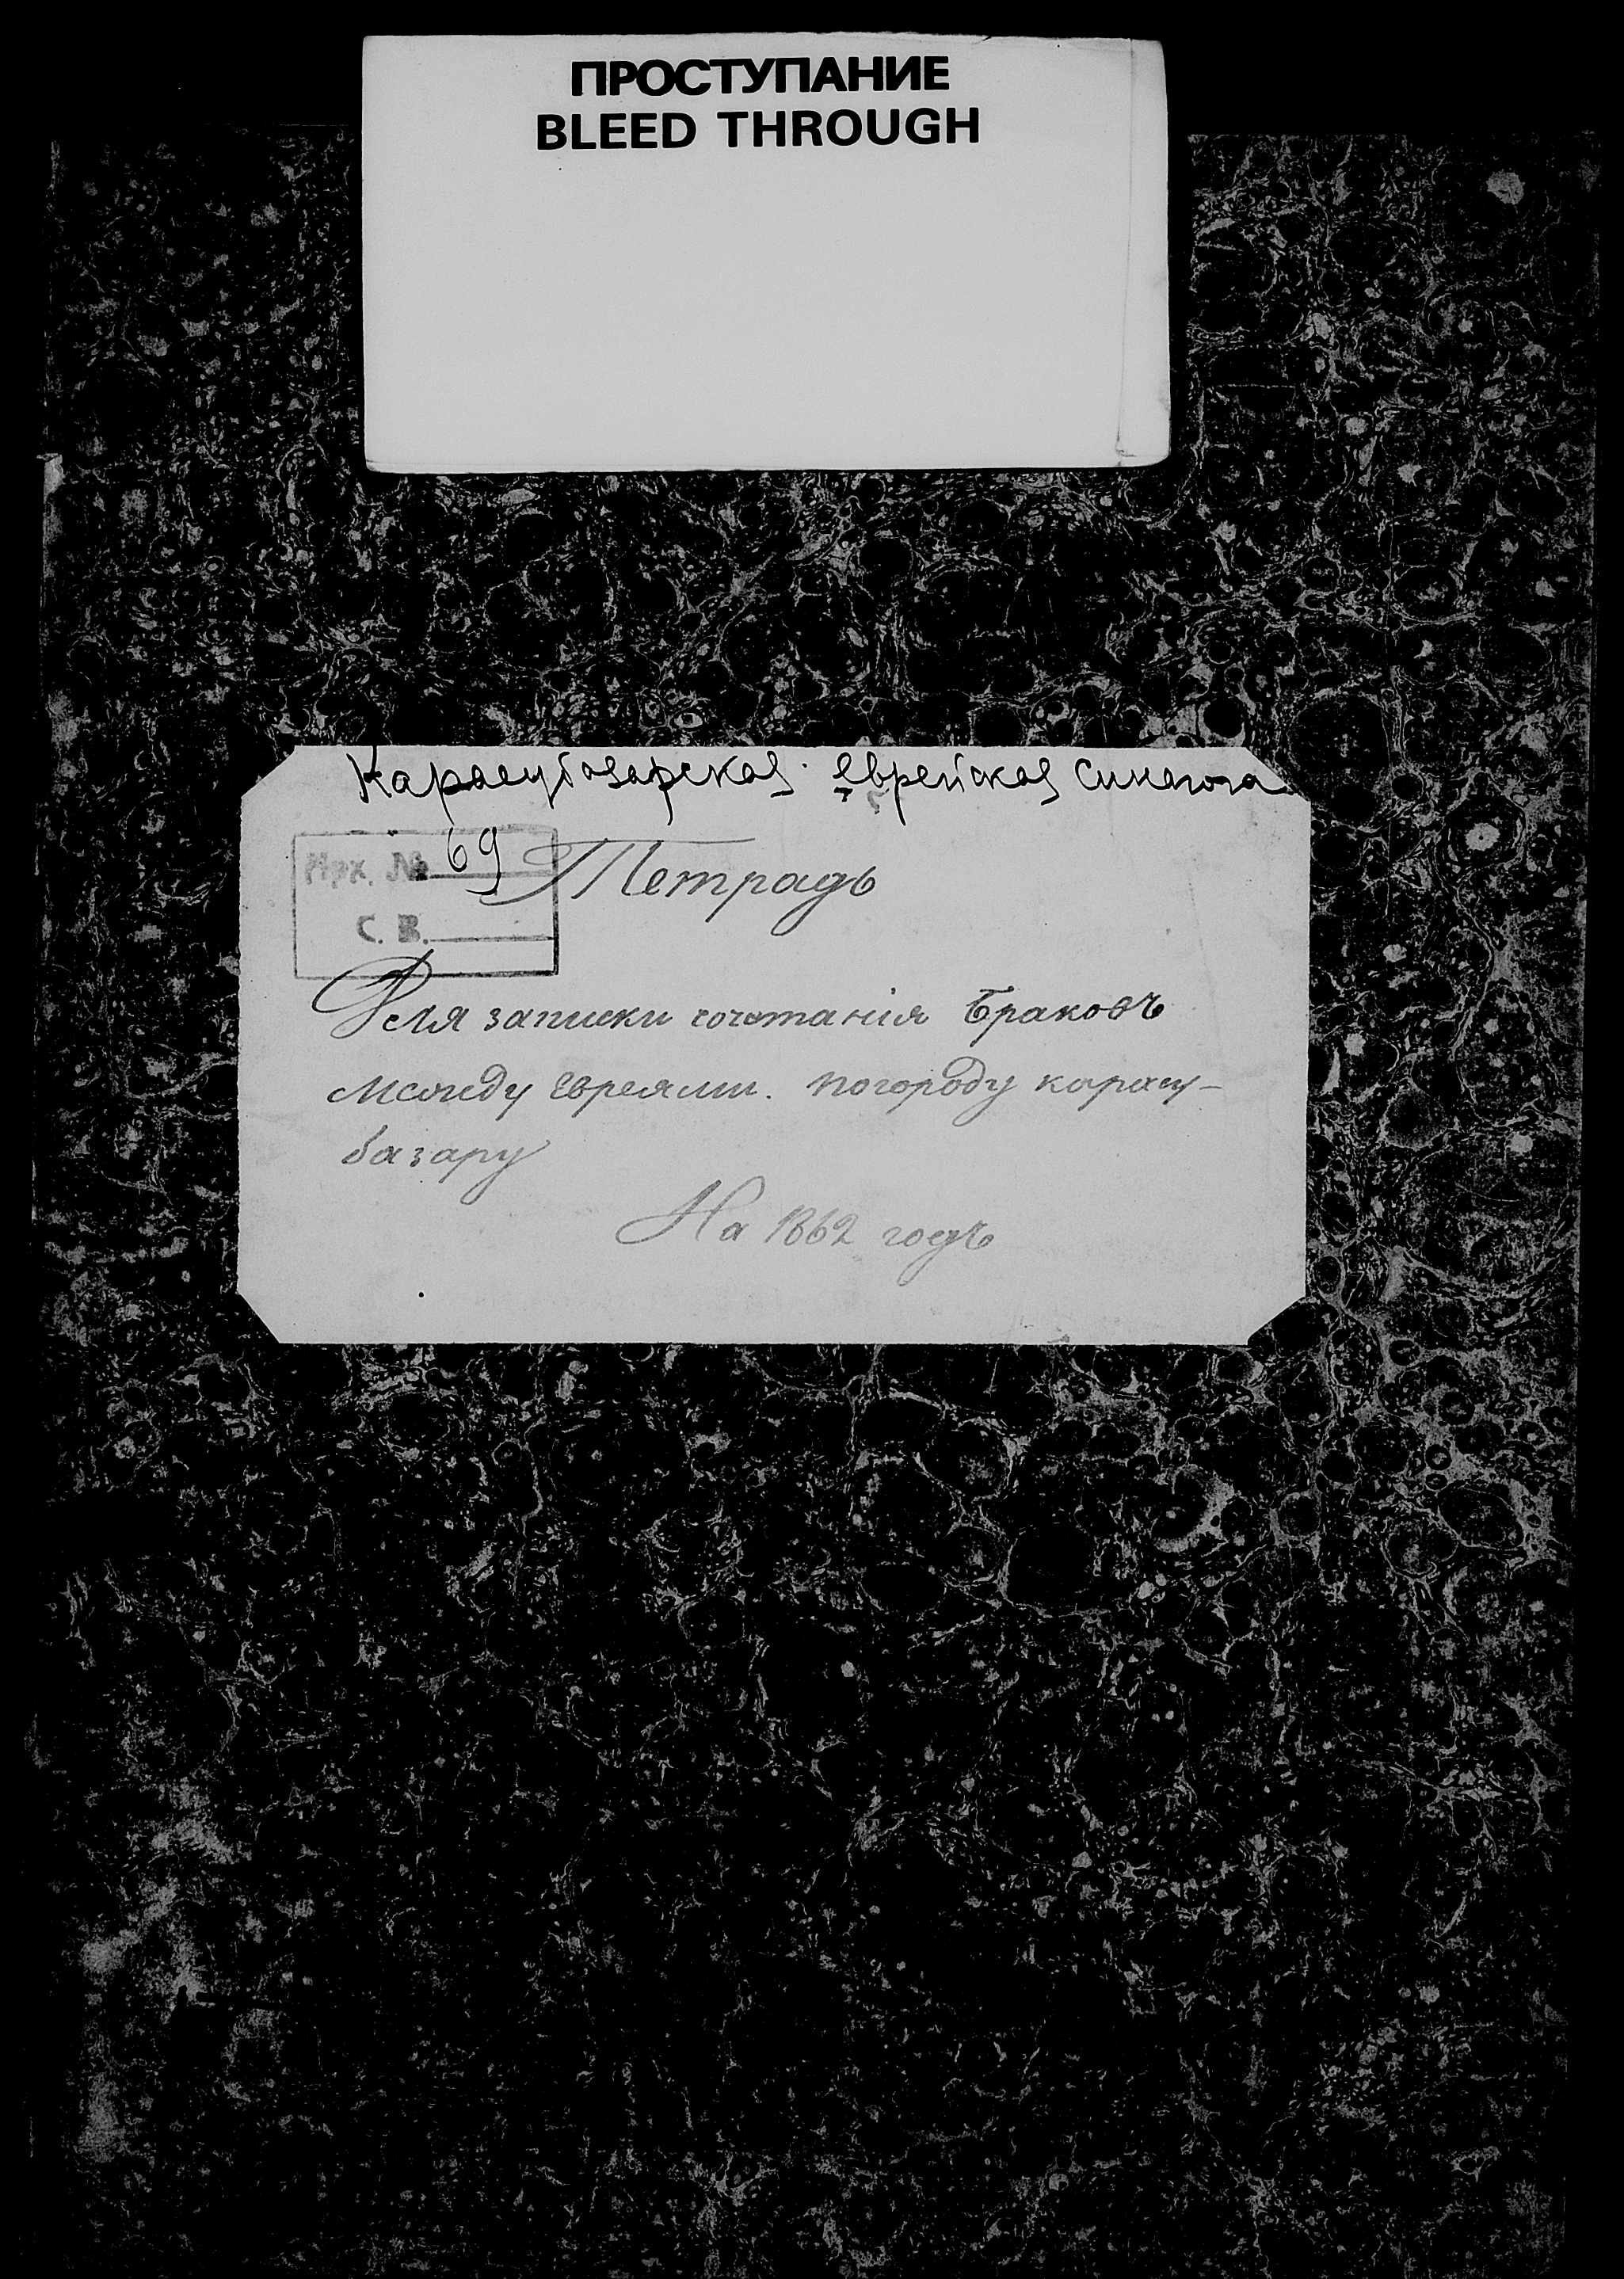 ПРОСТУПАНИЕ
BLEED THROUGH
Карасубазарская еврейская синагога
Арх. № 69
С. В.
Тетрадь
Для записки сочетанія Браковъ
между Евреями. погороду карасу-
базару
На 1862 годъ